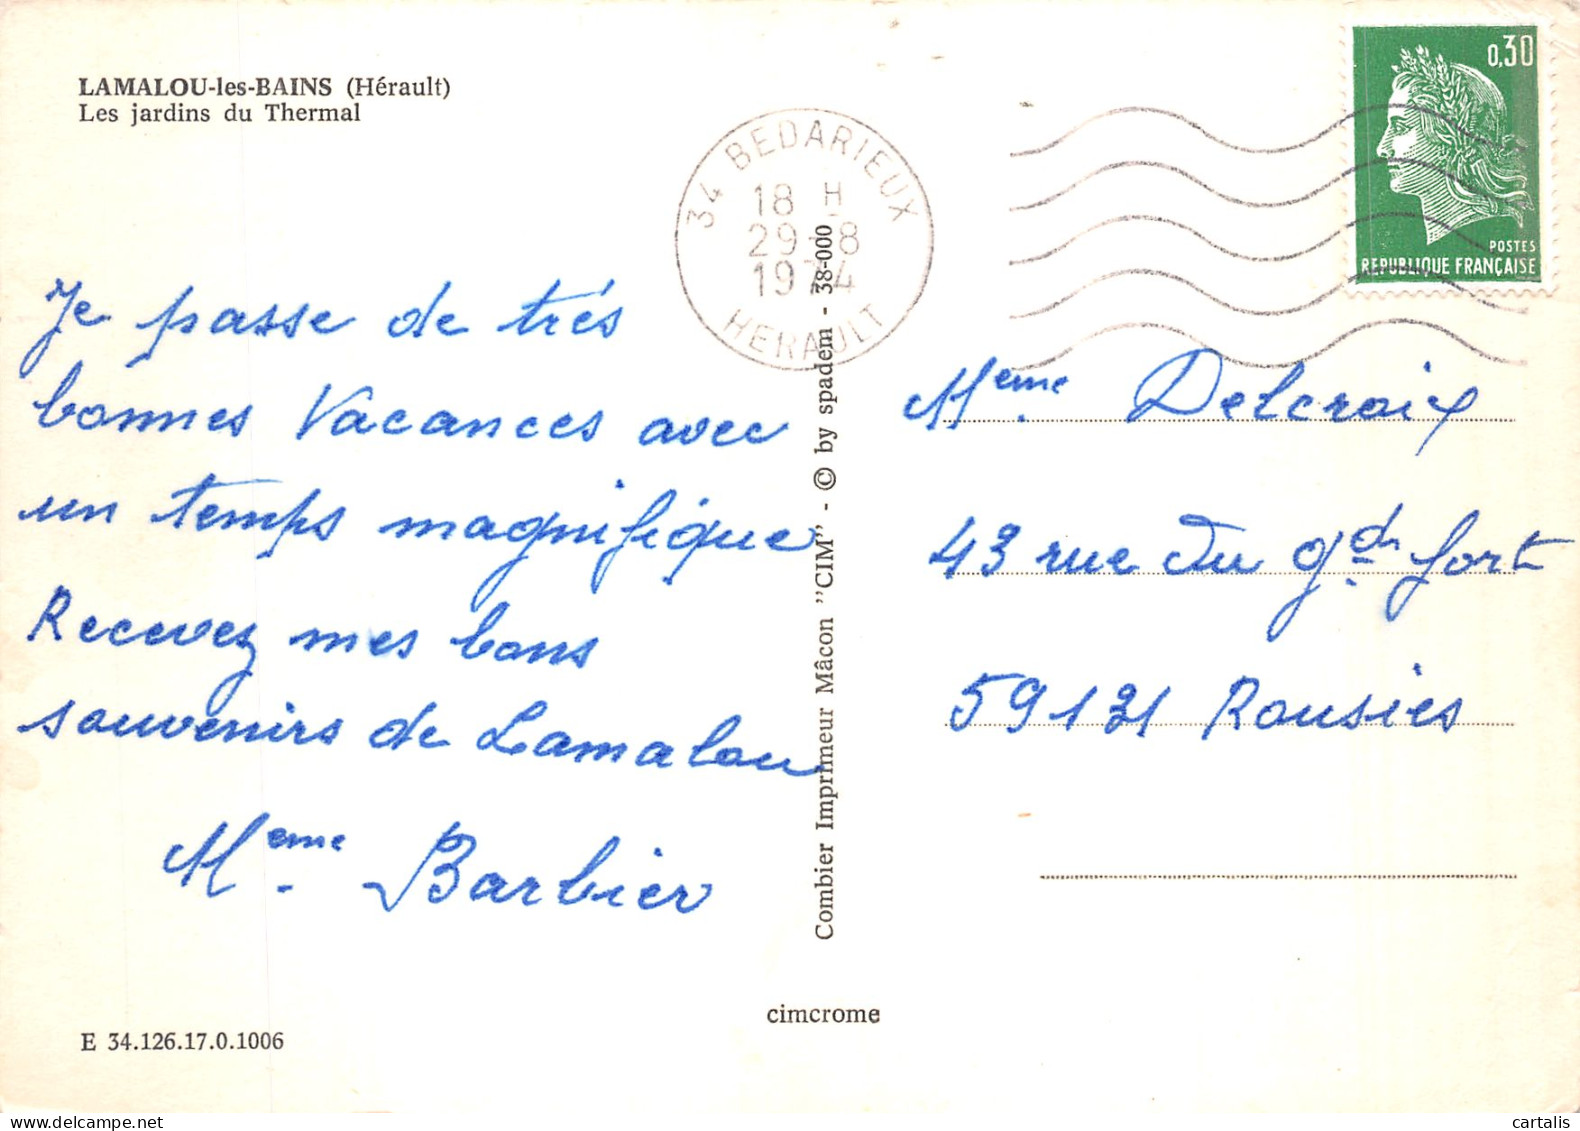 LAMALOU-les-BAINS (Hérault)
Les jardins du Thermal
0,30
POSTES
REPUBLIQUE FRANÇAISE
34 BEDARIEUX
18 H
29-8
1974
HERAULT
Je passe de trés
bonnes Vacances avec
un temps magnifique
Recevez mes bons
souvenirs de Lamalou
Meme. Barbier
Combier Imprimeur Mâcon "CIM" - © by spadem - 38-000
Meme. Delcroix
43 rue du gd fort
59131 Rousies
cimcrome
E 34.126.17.0.1006
cartalis